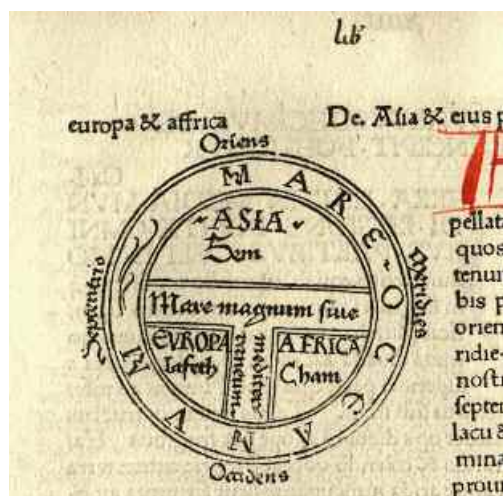 lib
europa & affrica
De. Asia & eius p
Oriens
MARE OCCEANVM
ASIA
Sem
Septentrio
Meridies
Mare magnum siue
mediter
raneum
EVROPA
Iafeth
AFRICA
Cham
Occidens
pellata
quos
tenum
bis p
orien
ridie-
nostr
septen
lacu &
mina
prouin